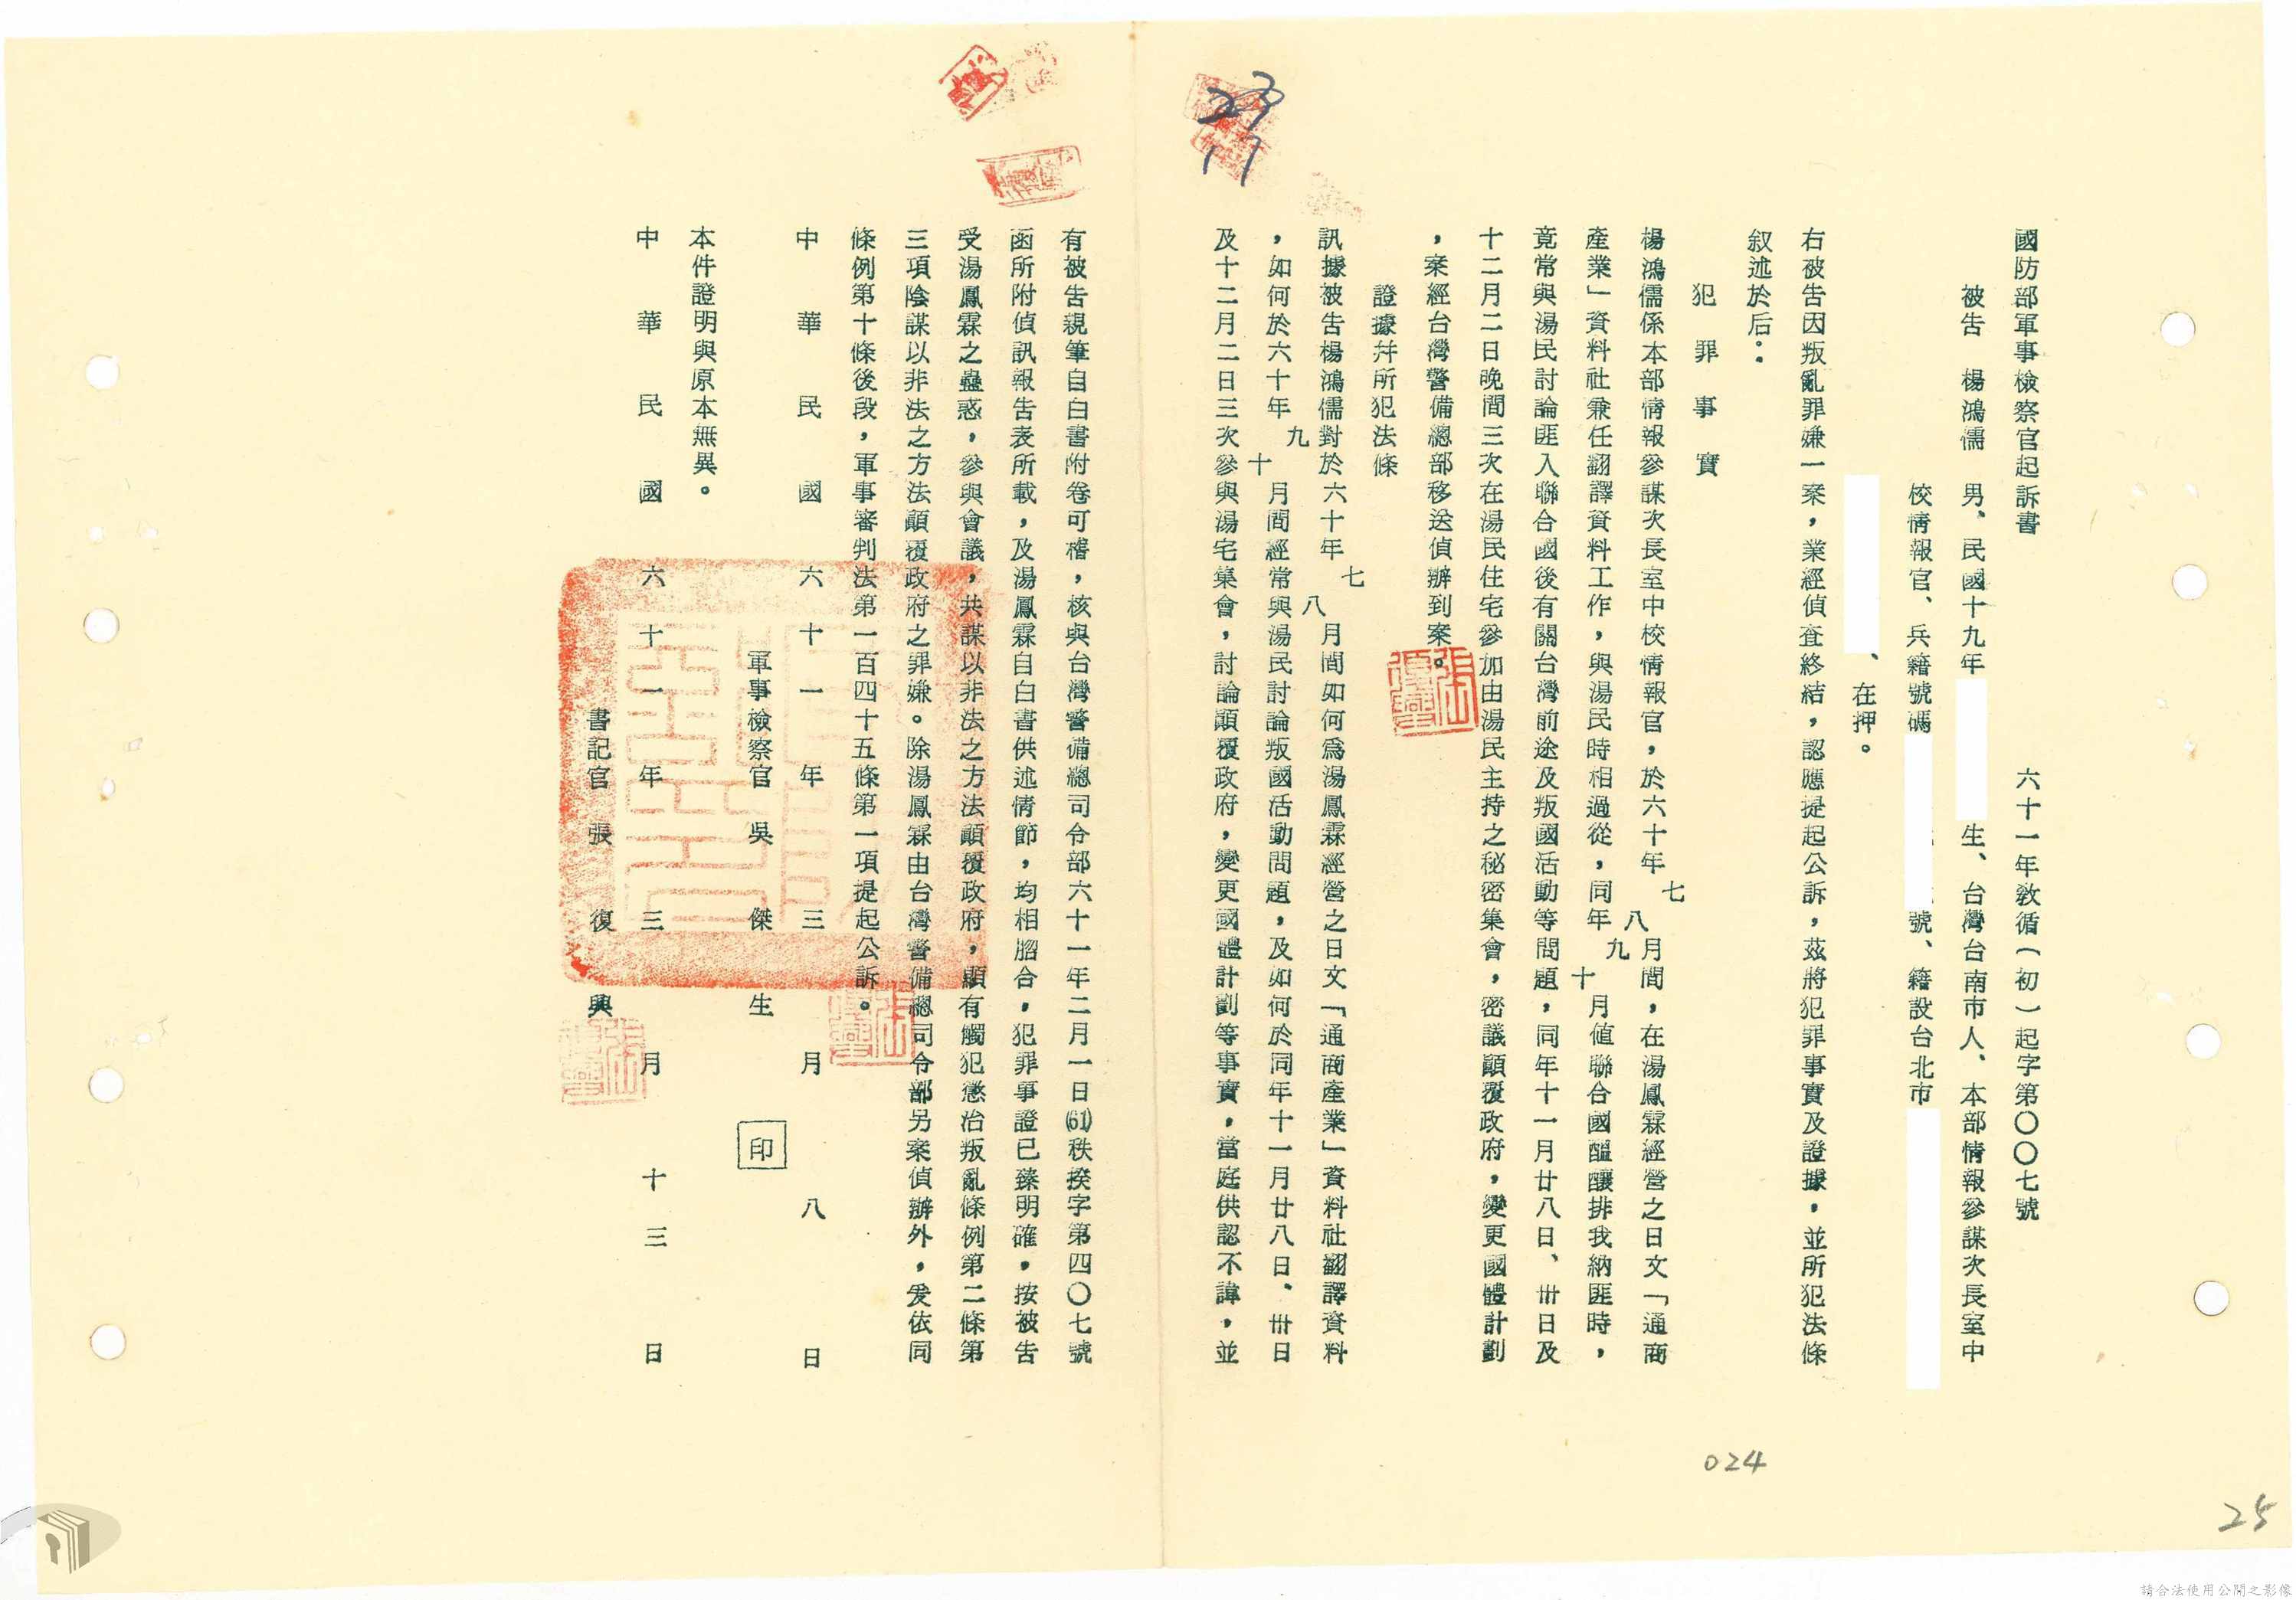 國防部軍事檢察官起訴書
六十一年教循(初)起字第〇〇七號
被告 楊鴻儒 男、民國十九年 生、台灣台南市人、本部情報參謀次長室中
校情報官、兵籍號碼 號、籍設台北市
、在押。
右被告因叛亂罪嫌一案，業經偵查終結，認應提起公訴，茲將犯罪事實及證據，並所犯法條
叙述於后：
犯罪事實
楊鴻儒係本部情報參謀次長室中校情報官，於六十年七八月間，在湯鳳霖經營之日文「通商
產業」資料社兼任翻譯資料工作，與湯民時相過從，同年九十月值聯合國醞釀排我納匪時，
竟常與湯民討論匪入聯合國後有關台灣前途及叛國活動等問題，同年十一月廿八日、卅日及
十二月二日晚間三次在湯民住宅參加由湯民主持之秘密集會，密議顛覆政府，變更國體計劃
，案經台灣警備總部移送偵辦到案。
證據并所犯法條
訊據被告楊鴻儒對於六十年七八月間如何為湯鳳霖經營之日文「通商產業」資料社翻譯資料
，如何於六十年九十月間經常與湯民討論叛國活動問題，及如何於同年十一月廿八日、卅日
及十二月二日三次參與湯宅集會，討論顛覆政府，變更國體計劃等事實，當庭供認不諱，並
有被告親筆自白書附卷可稽，核與台灣警備總司令部六十一年二月一日(61)秩揆字第四〇七號
函所附偵訊報告表所載，及湯鳳霖自白書供述情節，均相脗合，犯罪事證已臻明確，按被告
受湯鳳霖之蠱惑，參與會議，共謀以非法之方法顛覆政府，顯有觸犯懲治叛亂條例第二條第
三項陰謀以非法之方法顛覆政府之罪嫌。除湯鳳霖由台灣警備總司令部另案偵辦外，爰依同
條例第十條後段，軍事審判法第一百四十五條第一項提起公訴。
中華民國六十一年三月八日
軍事檢察官 吳傑生 印
本件證明與原本無異。
中華民國六十一年三月十三日
書記官 張復興
024
25
請合法使用公開之影像